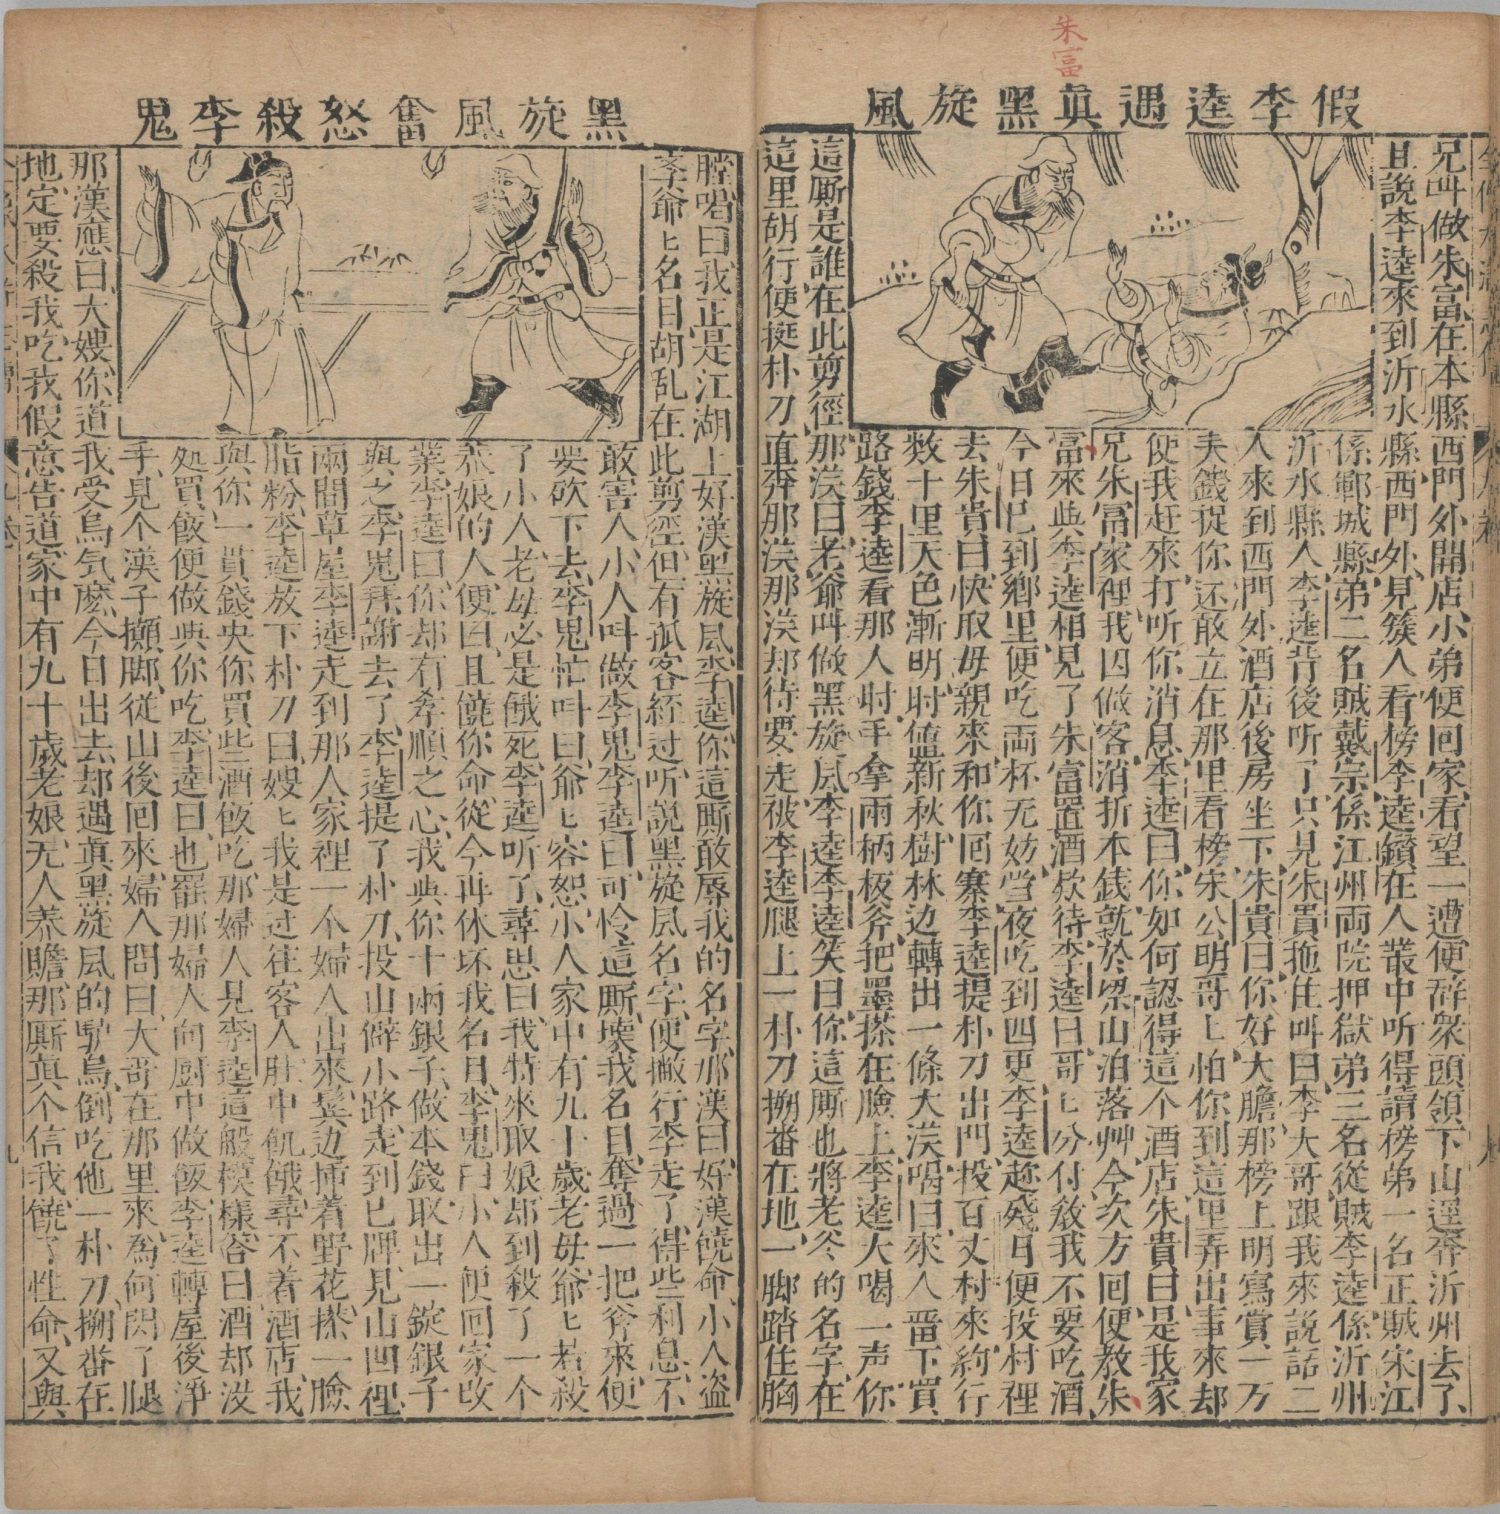 朱富
假李逵遇真黑旋風
兄叫做朱富在本縣西門外開店小弟便回家看望一遭便辞衆頭領下山逕奔沂州去了
且説李逵來到沂水縣西門外見簇人看榜李逵鑽在人叢中听得讀榜弟一名正賊宋江
係鄆城縣弟二名賊戴宗係江州両院押獄弟三名從賊李逵係沂州
沂水縣人李逵背後听了只見朱貴拖住叫曰李大哥跟我來説話二
人來到西門外酒店後房坐下朱貴曰你好大膽那榜上明寫賞一万
夫錢捉你还敢立在那里看榜宋公明哥匕怕你到這里弄出事來却
使我赶來打听你消息李逵曰你如何認得這个酒店朱貴曰是我家
兄朱富家裡我因做客消折本錢就於梁山泊落艸今次方回便教朱
富來與李逵相見了朱富置酒欵待李逵曰哥匕分付放我不要吃酒
今日已到鄉里便吃両杯无妨當夜吃到四更李逵趂殘月便投村裡
去朱貴曰快取母親來和你回寨李逵提朴刀出門投百丈村來約行
数十里天色漸明时值新秋樹林边轉出一條大漢喝曰來人畱下買
路錢李逵看那人时手拿兩柄板斧把墨搽在臉上李逵大喝一声你
這厮是誰在此剪徑那漢曰老爺叫做黑旋風李逵李逵笑曰你這厮也將老爷的名字在
這里胡行便挺朴刀直奔那漢那漢却待要走被李逵腿上一朴刀搠番在地一脚踏住胸
黑旋風奮怒殺李鬼
膛喝曰我正是江湖上好漢黑旋風李逵你這厮敢辱我的名字那漢曰好漢饒命小人盗
李爺匕名目胡乱在此剪徑但有孤客経过听説黑旋風名字便撇行李走了得些利息不
敢害人小人呌做李鬼李逵曰可怜這厮壊我名目奪過一把斧來便
要砍下去李鬼忙呌曰爺匕容恕小人家中有九十歲老母爺匕若殺
了小人老母必是餓死李逵听了尋思曰我特來取娘却到殺了一个
养娘的人便曰且饒你命從今再休坏我名目李鬼曰小人便回家改
業李逵曰你却有孝順之心我與你十両銀子做本錢取出一錠銀子
與之李鬼拜謝去了李逵提了朴刀投山僻小路走到巳牌見山凹裡
兩間草屋李逵走到那人家裡一个婦人出來鬢边揷着野花搽一臉
脂粉李逵放下朴刀曰嫂匕我是过往客人肚中飢餓尋不着酒店我
與你一貫錢央你買些酒飯吃那婦人見李逵這般模樣答曰酒却没
処買飯便做與你吃李逵曰也罷那婦人向厨中做飯李逵轉屋後淨
手見个漢子攧脚從山後回來婦人問曰大哥在那里來為何閃了腿
那漢應曰大嫂你道我受鳥気麽今日出去却遇真黑旋風的馿鳥倒吃他一朴刀搠番在
地定要殺我吃我假意告道家中有九十歲老娘无人养贍那厮真个信我饒了性命又與